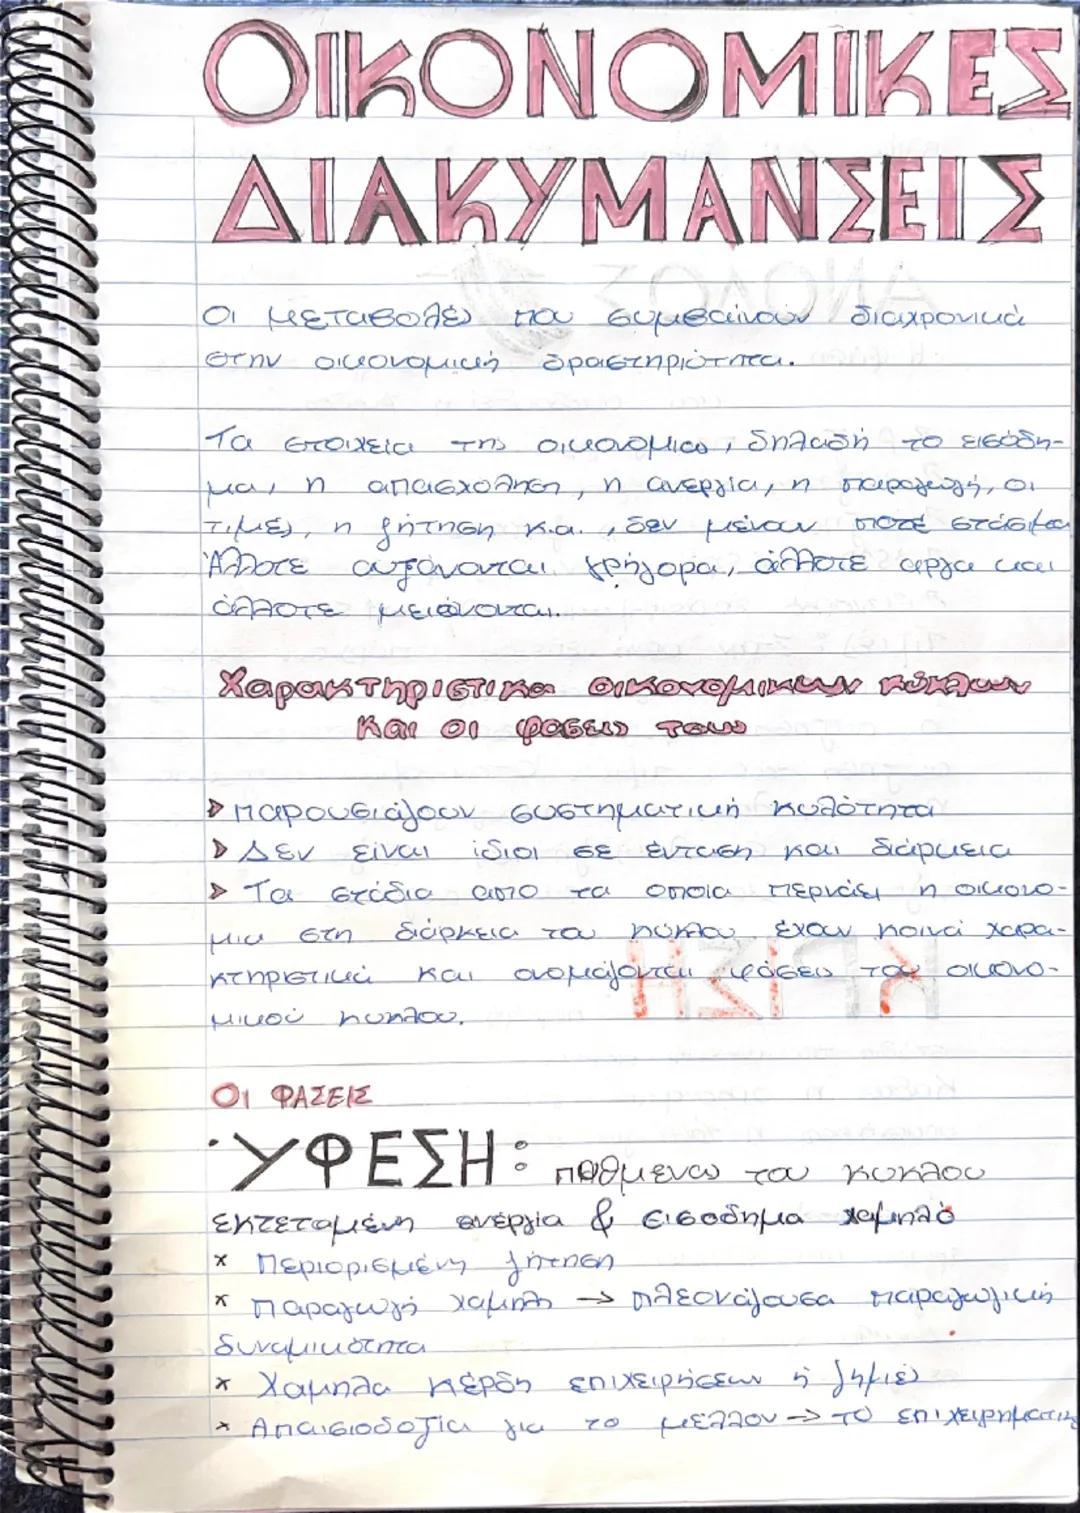 ΟΙΚΟΝΟΜΙΚΕΣ
ΔΙΑΚΥΜΑΝΣΕΙΣ
Οι μεταβολές που συμβαίνουν διαχρονικά
στην οικονομική δραστηριότητα.
Τα στοιχεία της οικονομίας, δηλαδή το εισόδη-
μα, η απασχόληση, η ανεργία, η παραγωγή, οι
τιμές, η ζήτηση κ.α., δεν μένουν ποτέ στάσιμα
Άλλοτε αυξάνονται γρήγορα, άλλοτε αργα και
άλλοτε μειώνονται.
Χαρακτηριστικα οικονομικων κύκλων
και οι φασεις τους
▷ παρουσιάζουν συστηματική κυλότητα
▷ Δεν είναι ίδιοι σε ένταση και διάρκεια
▷ Τα στάδια απο τα οποια περνάει η οικονο-
μια στη διάρκεια του κυκλου έχουν κοινά χαρα-
κτηριστικά και ονομάζονται φάσεις του οικονο-
μικού κυκλου.
ΟΙ ΦΑΣΕΙΣ
·ΥΦΕΣΗ: πυθμενας του κυκλου
εκτεταμένη ανεργία & εισοδημα χαμηλό
x Περιορισμένη ζήτηση
x Παραγωγή χαμηλη → πλεονάζουσα παραγωγική
δυναμικότητα
x Χαμηλα κέρδη επιχειρήσεων ή ζημιές
x Απαισιοδοξία για το μέλλον → το